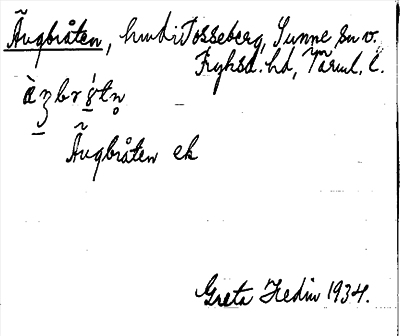 Ängbråten, hmd i Tosseberg, Sunne sn o.
Fryksd. hd, Värml. l.
Ängbråten ek
Greta Hedin 1934.